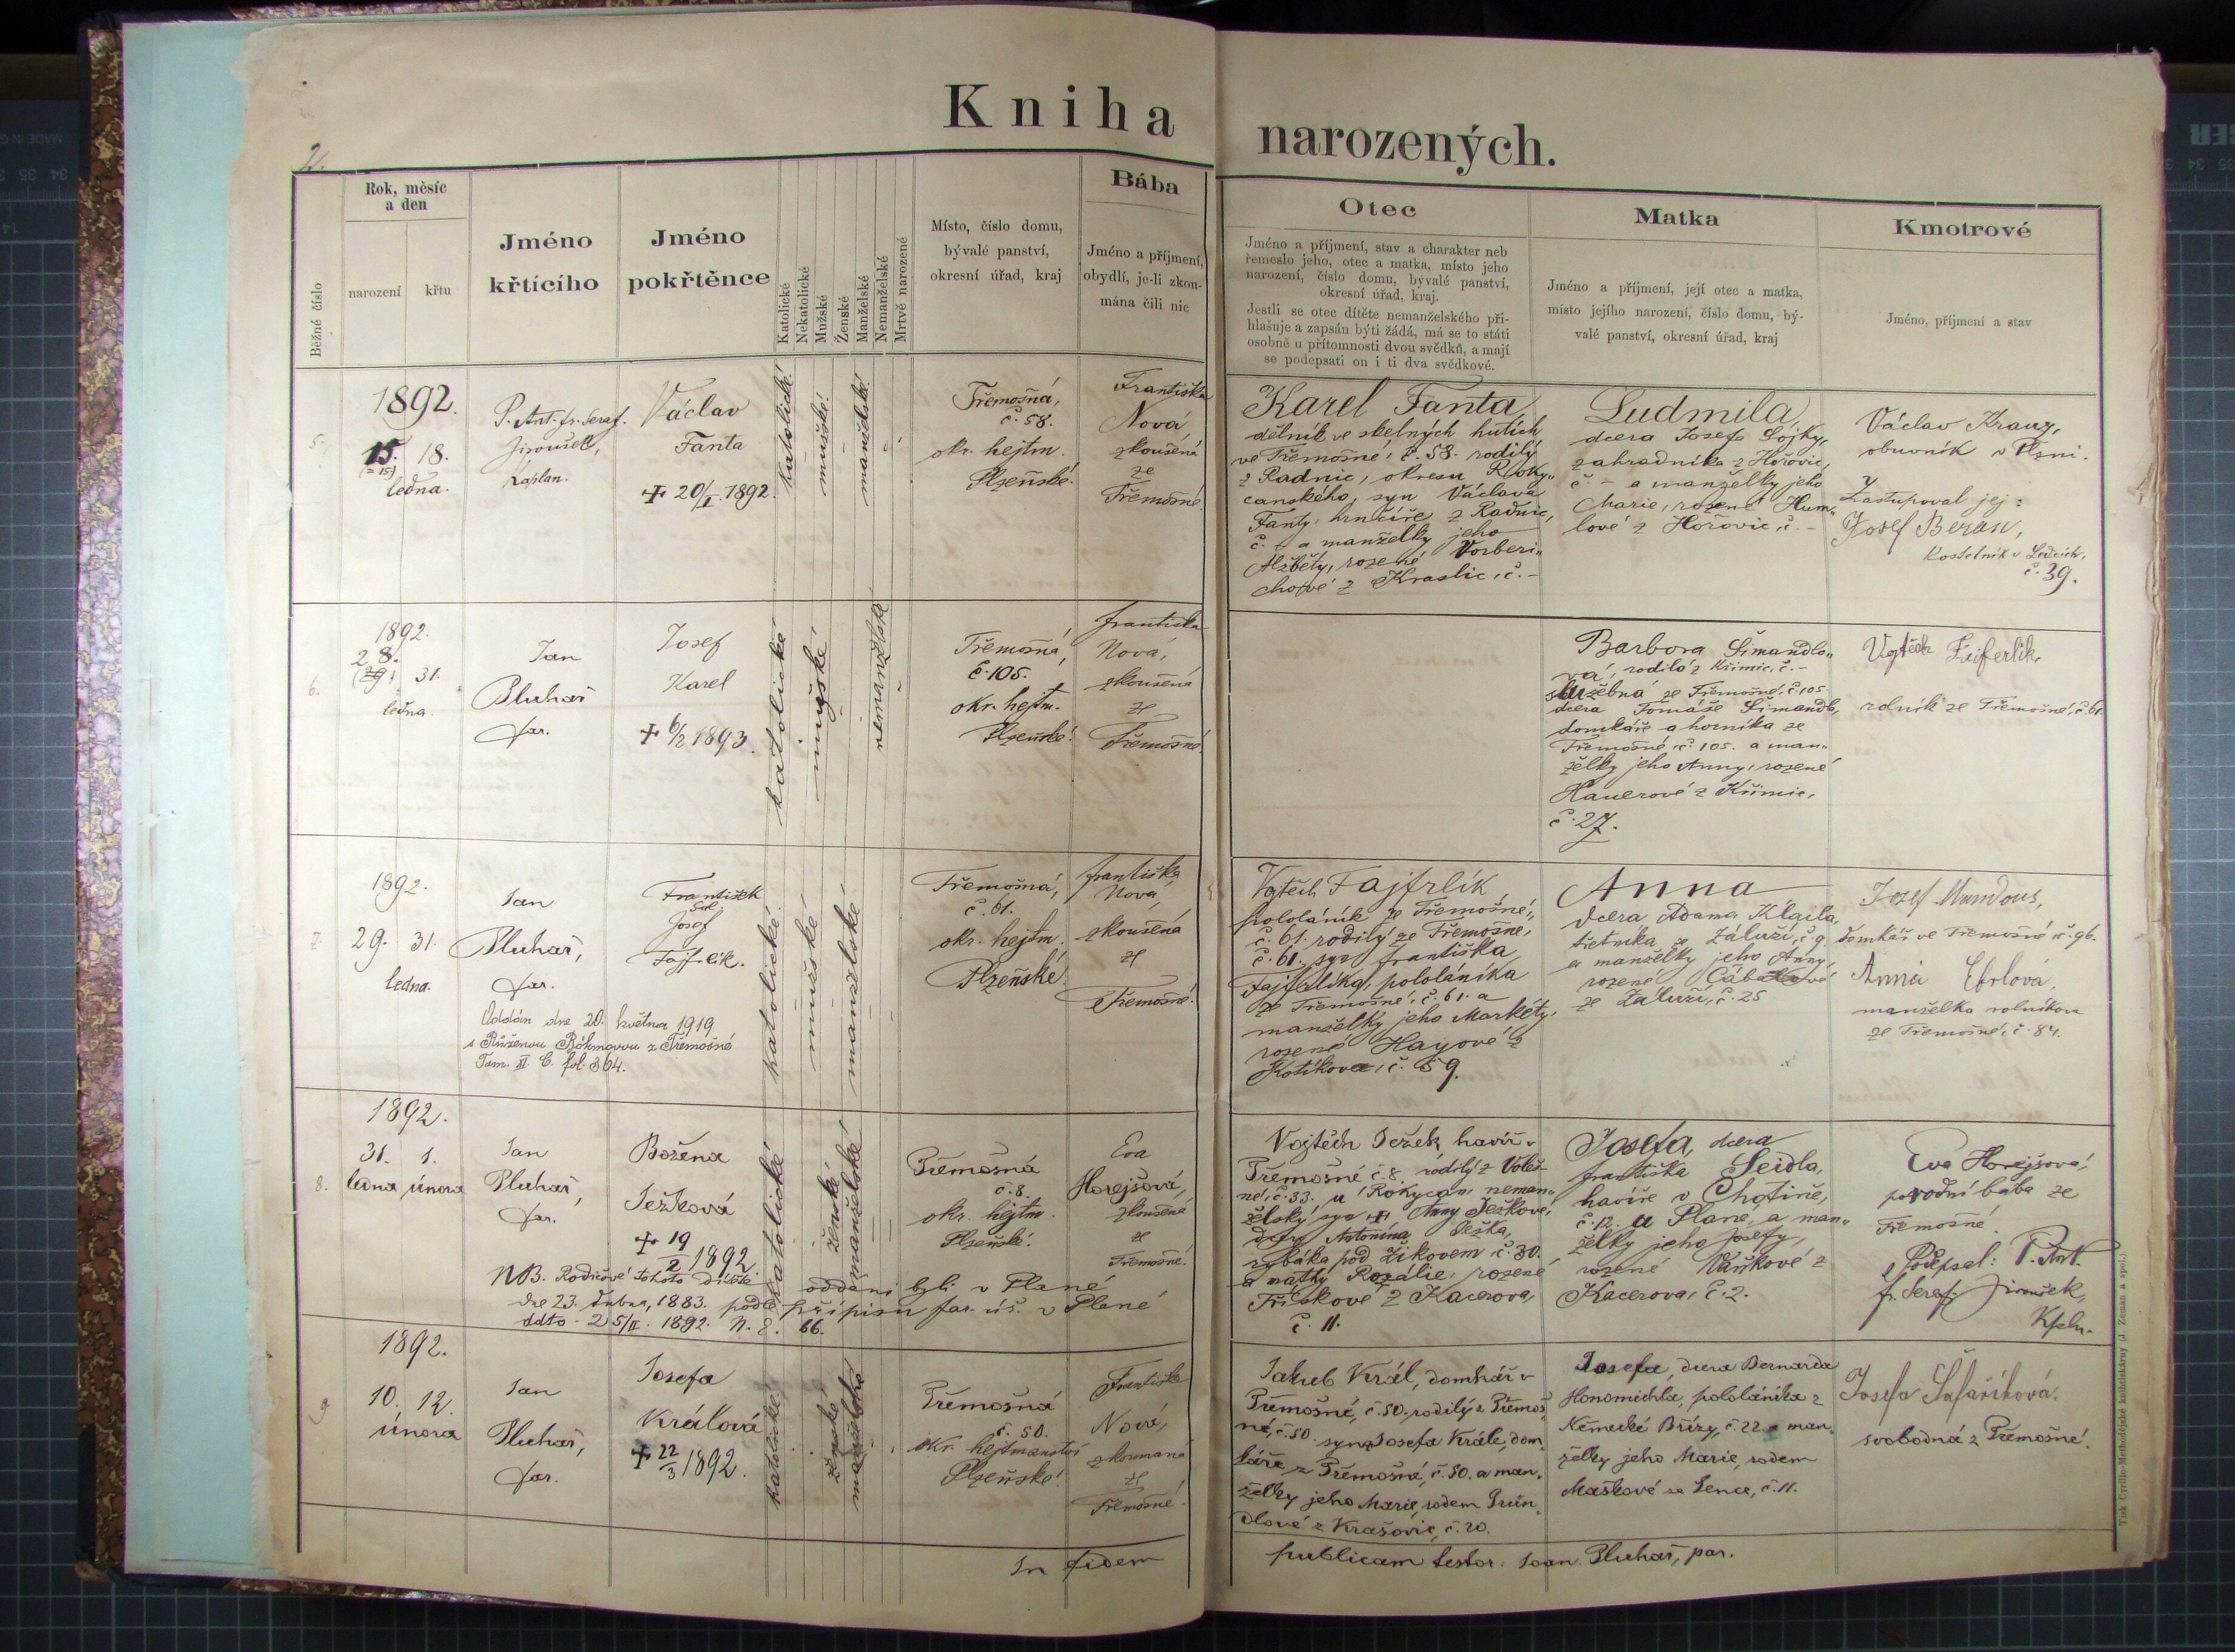 Kniha narozených.
2.
Běžné číslo
Rok, měsíc
a den
narození
křtu
Jméno
křtícího
Jméno
pokřtěnce
Katolické
Nekatolické
Mužské
Ženské
Manželské
Nemanželské
Mrtvě narozené
Místo, číslo domu,
bývalé panství,
okresní úřad, kraj
Bába
Jméno a příjmení,
obydlí, je-li zkou-
mána čili nic
Otec
Jméno a příjmení, stav a charakter neb
řemeslo jeho, otec a matka, místo jeho
narození, číslo domu, bývalé panství,
okresní úřad, kraj.
Jestli se otec dítěte nemanželského při-
hlašuje a zapsán býti žádá, má se to státi
osobně u přítomnosti dvou svědků, a mají
se podepsati on i ti dva svědkové.
Matka
Jméno a příjmení, její otec a matka,
místo jejího narození, číslo domu, bý-
valé panství, okresní úřad, kraj
Kmotrové
Jméno, příjmení a stav
5.
1892.
15. 18.
(= 15.)
ledna.
P. Ant. fr. Seraf.
Jiroušek,
kaplan.
Václav
Fanta
+ 20/I. 1892.
katolické.
mužské.
manželské.
Třemošná,
č. 58.
okr. hejtm.
Plzeňské.
Františka
Nová
zkoušená
ze
Třemošné.
Karel Fanta,
dělník ve skelných hutích
ve Třemošné, č. 58. rodilý
z Radnic, okresu Roky„
canského, syn Václava
Fanty, hrnčíře z Radnic,
č. - a manželky jeho
Alžběty, rozené Vorberi„
chofvé z Kraslic, č. -
Ludmila,
dcera Josefa Sojky,
zahradníka z Hořovic,
č. - a manželky jeho
Marie, rozené Hum„
lové z Hořovic, č. -
Václav Kranz,
obuvník v Plzni.
Zastupoval jej:
Josef Beran,
kostelník v Ledcích,
č. 39.
6.
1892.
28.
(29) 31.
ledna.
Jan
Pluhař
far.
Josef
Karel
+ 6/2 1893.
katolické
mužské
nemanželské
Třemošná,
č. 105.
okr. hejtm.
Plzeňské.
Františka
Nová,
zkoušená
ze
Třemošné
Barbora Šimandlo„
vá, rodilá z Křimic, č. -
služebná ze Třemošné, č. 105
dcera Tomáše Šimandla,
domkáře a horníka ze
Třemošné, č. 105. a man„
želky jeho Anny, rozené
Hauerové z Křimic,
č. 27.
Vojtěch Fajferlík,
rolník ze Třemošné, č. 61.
7.
1892.
29. 31.
ledna.
Jan
Pluhař,
far.
František
Josef
Fajfrlík.
Oddán dne 20. května 1919.
s Růženou Bökmovou z Třemošné
Tom. XI. C. fol. 364.
katolické.
mužské
manželské
Třemošná,
č. 61.
okr. hejtm.
Plzeňské
Františka
Nová,
zkoušená
ze
Třemošné.
Vojtěch Fajfrlík,
pololáník ze Třemošné,
č. 61. rodilý ze Třemošné,
č. 61. syn Františka
Fajfrlíka, pololáníka
ze Třemošné, č. 61. a
manželky jeho Markéty,
rozené Hayové z
Kotíkova, č. 59.
Anna
dcera Adama Klailа,
ze Záluží, č. 9
a manželky jeho Anny,
rozené
ze Záluží, č. 25
Josef Mundous,
domkář ve Třemošné č. 96.
Anna Ebrlová,
manželka rolníkova
ze Třemošné, č. 84.
8.
1892.
31. 1.
ledna února
Jan
Pluhař,
far.
Božena
Ježková
+ 19/2 1892.
NB. Rodičové tohoto dítěte oddáni byli v Plané
dne 23. dubna, 1883. podle přípisu far. úř. v Plané
ddto. 25/II. 1892. N. E. 66.
katolické
ženské
manželské
Třemošná
č. 8.
okr. hejtm.
Plzeňské.
Eva
Horejšová,
zkoušená
ze
Třemošné.
Vojtěch Ježek, havíř v
Třemošné č. 8. rodilý z Voleš
né, č. 33. u Rokycan, neman„
želský syn + Anny Ježkové,
dcery Antonína Ježka,
rybáka pod Žikovem, č. 30.
a matky Rozálie, rozené
Tříškové z Kacerova,
č. 11.
Josefa, dcera
Františka Seidla,
havíře v Chotině,
č. 12. u Plané, a man„
želky jeho Josefy,
rozené Vaňkové z
Kacerova, č. 2.
Eva Horejšová,
porodní bába ze
Třemošné.
Podepsal: P. Ant.
fr. Seraf. Jiroušek,
Kpln.
9
1892.
10. 12.
února
Jan
Pluhař,
far.
Josefa
Králová
+ 22/3 1892.
katolické
ženské
manželské
Třemošná
č. 50.
okr. hejtmanství
Plzeňské.
Františka
Nová,
zkoumaná
ze
Třemošné.
Jakub Král, domkář v
Třemošné, č. 50, rodilý z Třemoš
né, č. 50 syn Josefa Krále, dom„
káře z Třemošné, č. 50. a man„
želky jeho Marie, rodem Grün„
dlové z Krašovic, č. 20.
Josefa, dcera Bernarda
Honomichla, pololáníka z
Německé Břízy, č. 22 a man„
želky jeho Marie, rodem
Maškové ze Žence, č. 11.
Josefa Šafaříková.
svobodná z Třemošné.
In fidem publicam testor: Joan. Pluhař, par.
Tisk Cyrillo-Methodějské knihtiskárny (J. Zeman a spol.).